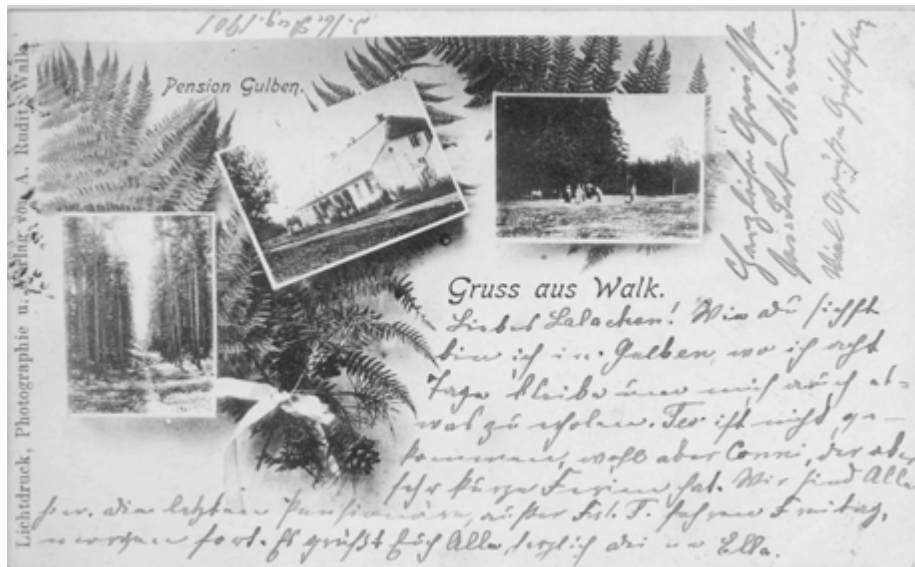 2./16. Aug. 1901
Pension Gulben.
Lichtdruck, Photographie u. Verlag von A. Rudit, Walk.
Gruss aus Walk.
Liebes Lalachen! Wie du siehst
bin ich in Gulben, wo ich acht
Tage bleibe um mich auch et-
was zu erholen. ist nicht ge-
kommen, wohl aber Conni, der aber
sehr kurze Ferien hat. Wir sind Alle
hier, die letzten Pensionäre, außer Frl. T. fahren Freitag,
morgen fort. Es grüßt Euch Alle herzlich Ella.
Herzliche Grüße
Tante Marie
Viel Grüße